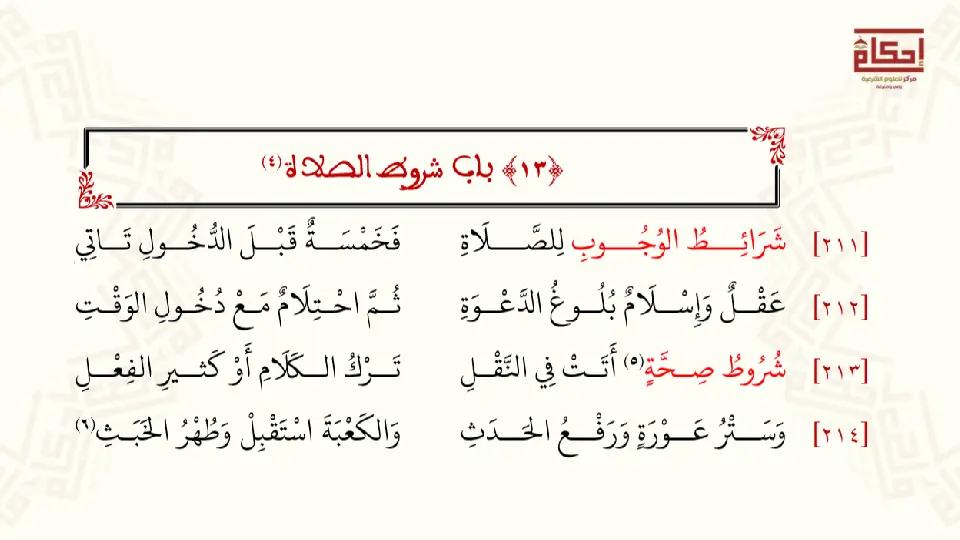 إحكام
مركز للعلوم الشرعية
﴿١٣﴾ باب شروط الصلاة (٤)
[٢١١] شَرَائِـطُ الوُجُـوبِ لِلصَّـلَاةِ فَخَمْسَـةٌ قَبْـلَ الدُّخُـولِ تَـاتِي
[٢١٢] عَقْـلٌ وَإِسْـلَامٌ بُلُـوغُ الدَّعْـوَةِ ثُـمَّ احْـتِلَامٌ مَـعْ دُخُـولِ الوَقْـتِ
[٢١٣] شُرُوطُ صِـحَّةٍ(٥) أَتَـتْ فِي النَّقْـلِ تَـرْكُ الـكَلَامِ أَوْ كَثـيرِ الفِعْـلِ
[٢١٤] وَسَـتْرُ عَـوْرَةٍ وَرَفْـعُ الحَـدَثِ وَالكَعْبَةَ اسْتَقْبِلْ وَطُهْرُ الخَبَـثِ(٦)